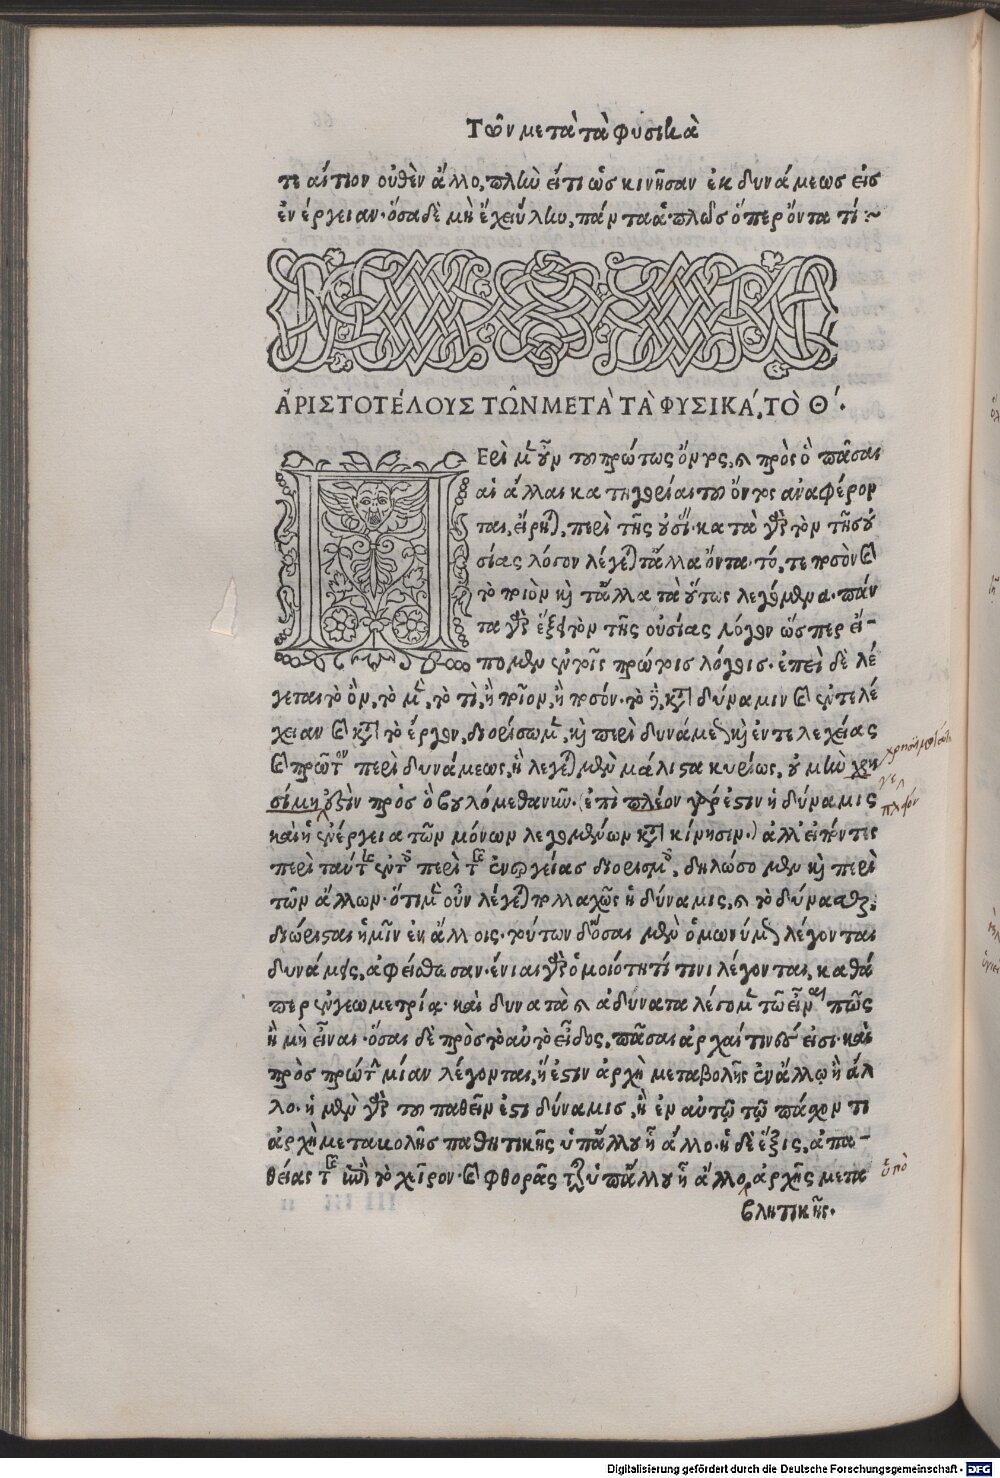 Τῶν μετὰ τὰ φυσικὰ
τι αἴτιον οὐθὲν ἄλλο, πλὴν εἴτι ὡς κινῆσαν ἐκ δυνάμεως εἰς
ἐνέργειαν· ὅσα δὲ μὴ ἔχει ὕλην, πάντα ἁπλῶς ὅπερ ὄντα τί :~
ἈΡΙΣΤΟΤΈΛΟΥΣ ΤΩ͂Ν ΜΕΤᾺ ΤᾺ ΦΥΣΙΚΆ, ΤῸ Θ΄.
Π
Ερὶ μὲν οὖν τοῦ πρώτως ὄντος, καὶ πρὸς ὃ πᾶσαι
αἱ ἄλλαι κατηγορίαι τοῦ ὄντος ἀναφέρον
ται, εἴρηται, περὶ τῆς οὐσίας· κατὰ γὰρ τὸν τῆς οὐ
σίας λόγον λέγεται τἄλλα ὄντα· τό, τε ποσὸν καὶ
τὸ ποιὸν καὶ τἄλλα τὰ οὕτως λεγόμενα· πάν
τα γὰρ ἕξει τὸν τῆς οὐσίας λόγον ὥσπερ εἴ-
πομεν ἐν τοῖς πρώτοις λόγοις· ἐπεὶ δὲ λέ
γεται τὸ ὂν, τὸ μὲν, τὸ τὶ, ἢ ποῖον, ἢ ποσόν· τὸ δὲ, κατὰ δύναμιν καὶ ἐντελέ
χειαν καὶ κατὰ τὸ ἔργον, διορίσωμεν, καὶ περὶ δυνάμεως καὶ ἐντελεχείας
καὶ πρῶτον περὶ δυνάμεως, ἣ λέγεται μὲν μάλιστα κυρίως, οὐ μὴν χρη
σίμη οὖσιν πρὸς ὃ βουλόμεθα νῦν· (ἐπὶ πλέον γάρ ἐστιν ἡ δύναμις
καὶ ἡ ἐνέργεια τῶν μόνων λεγομένων κατὰ κίνησιν·) ἀλλ' εἰπόντες
περὶ ταύτης ἐν τοῖς περὶ τῆς ἐνεργείας διορισμοῖς, δηλώσομεν καὶ περὶ
τῶν ἄλλων· ὅτι μὲν οὖν λέγεται πολλαχῶς ἡ δύναμις, καὶ τὸ δύνασθαι,
διώρισται ἡμῖν ἐν ἄλλοις· τούτων δ' ὅσαι μὲν ὁμωνύμως λέγονται
δυνάμεις, ἀφείσθωσαν· ἔνιαι γὰρ ὁμοιότητί τινι λέγονται, καθά
περ ἐν γεωμετρίᾳ· καὶ δυνατὰ καὶ ἀδύνατα λέγομεν τῷ εἶναι πῶς
ἢ μὴ εἶναι· ὅσαι δὲ πρὸς τὸ αὐτὸ εἶδος, πᾶσαι ἀρχαί τινές εἰσι· καὶ
πρὸς πρώτην μίαν λέγονται, ἥ ἐστιν ἀρχὴ μεταβολῆς ἐν ἄλλῳ ἢ ἄλ
λο· ἡ μὲν γὰρ τοῦ παθεῖν ἐστι δύναμις, ἡ ἐν αὐτῷ τῷ πάχοντι
ἀρχὴ μετακολῆς παθητικῆς ὑπ' ἄλλου ἢ ἄλλο· ἡ δὲ ἕξις, ἀπα-
θείας τῆς ἐπὶ τὸ χεῖρον· καὶ φθορᾶς τῆς ὑπ' ἄλλου ἢ ἄλλο, ἀρχῆς μετα
ὑπὸ
βλητικῆς.
Digitalisierung gefördert durch die Deutsche Forschungsgemeinschaft - DFG